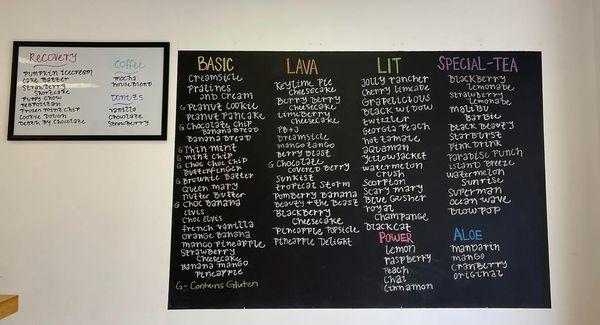 Recovery
Pumpkin Icecream
Cake Batter
Strawberry
Shortcake
Puppy Chow
Neapolitan
Frozen Mint Chip
Cookie Dough
Death By Chocolate
Coffee
mocha
House Blend
Donuts
vanilla
Chocolate
Strawberry
BASIC
Creamsicle
Pralines
and Cream
G Peanut Cookie
Peanut Pancake
G Chocolate Chip
Banana Bread
Banana Bread
G Thin Mint
G Mint Chip
G Choc Choc Chip
Butterfinger
G Brownie Batter
Queen Mary
Nutter Butter
G Choc Banana
Elvis
Choc Elvis
French Vanilla
Orange Banana
Mango Pineapple
Strawberry
Cheesecake
Banana Mango
Pineapple
G- Contains Gluten
LAVA
Keylime Pie
Cheesecake
Berry Berry
Cheesecake
LimeBerry
Cheesecake
PB+J
Dreamsicle
Mango Tango
Berry Blast
G Chocolate
Covered Berry
Sunkist
Tropical Storm
PomBerry Banana
Beauty + the Beast
BlackBerry
Cheesecake
Pineapple Popsicle
Pineapple Delight
LIT
Jolly Rancher
Cherry Limeade
Grapelicious
Black Widow
Twizzler
Georgia Peach
Hottamale
Aquaman
Yellow Jacket
Watermelon
Crush
Scorpion
Scary Mary
Blue Gusher
Royal
Champange
BlackCat
POWER
Lemon
Raspberry
Peach
Chai
Cinnamon
SPECIAL-TEA
BlackBerry
Lemonade
Strawberry
Lemonade
Malibu
Barbie
Black Beauty
Starburst
Pink Drink
Paradise Punch
Island Breeze
Watermelon
Sunrise
Superman
Ocean Wave
Blow Pop
ALOE
Mandarin
Mango
Cranberry
Original